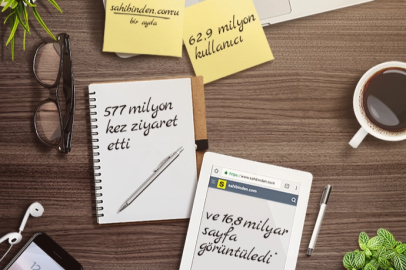 sahibinden.com'u
bir ayda
62,9 milyon
kullanıcı
577 milyon
kez ziyaret
etti
https://www.sahibinden.com
S sahibinden.com
ve 16,8 milyar
sayfa
görüntüledi*